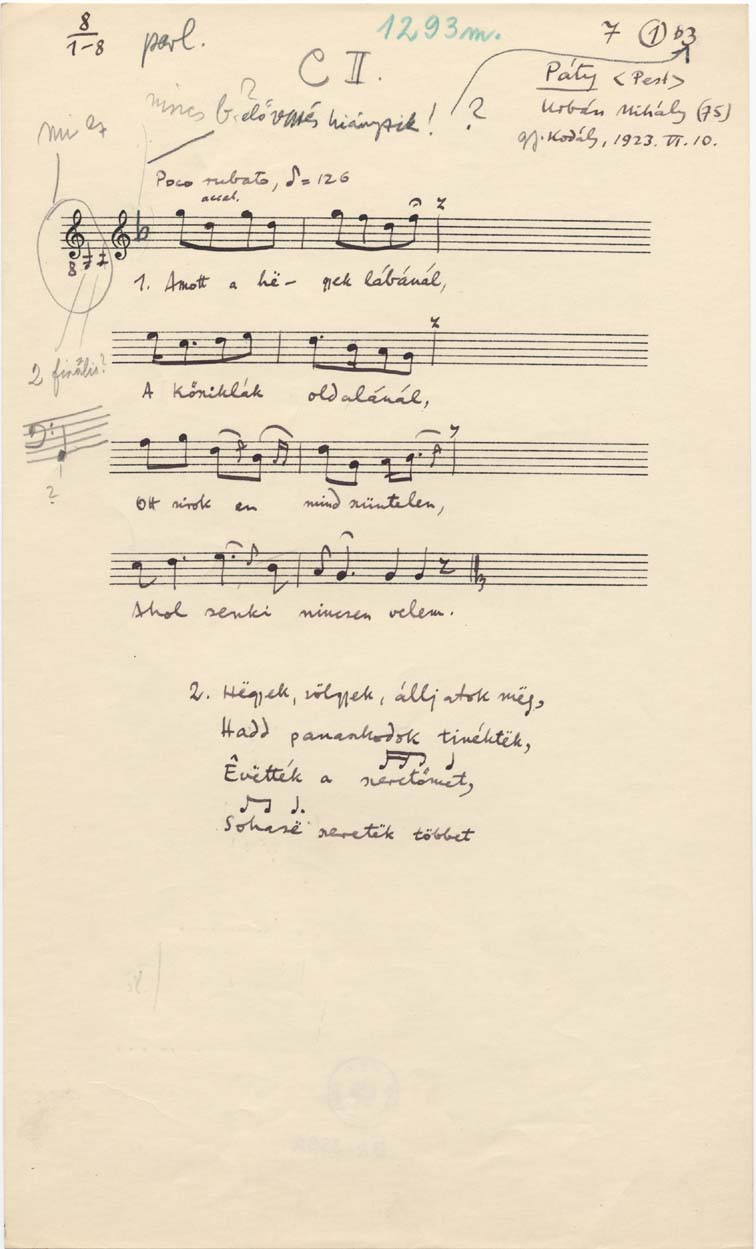 8
1-8
parl.
1293 m.
7 ① b3
C II.
Páty <Pest>
Urbán Mihály (75)
gy. Kodály, 1923. VI. 10.
nincs b. előjegyzés hiányzik! ?
mi ez
Poco rubato, ♪ = 126
accel.
8
1. Amott a hë- gyek lábánál,
2 finális?
A Kősziklák oldalánál,
?
Ott sirok en mind szüntelen,
Ahol senki nincsen velem.
2. Hëgyek, völgyek, álljatok mëg,
Hadd panaszkodok tinéktëk,
Êvëtték a szeretőmet,
Sohasë szeretëk többet